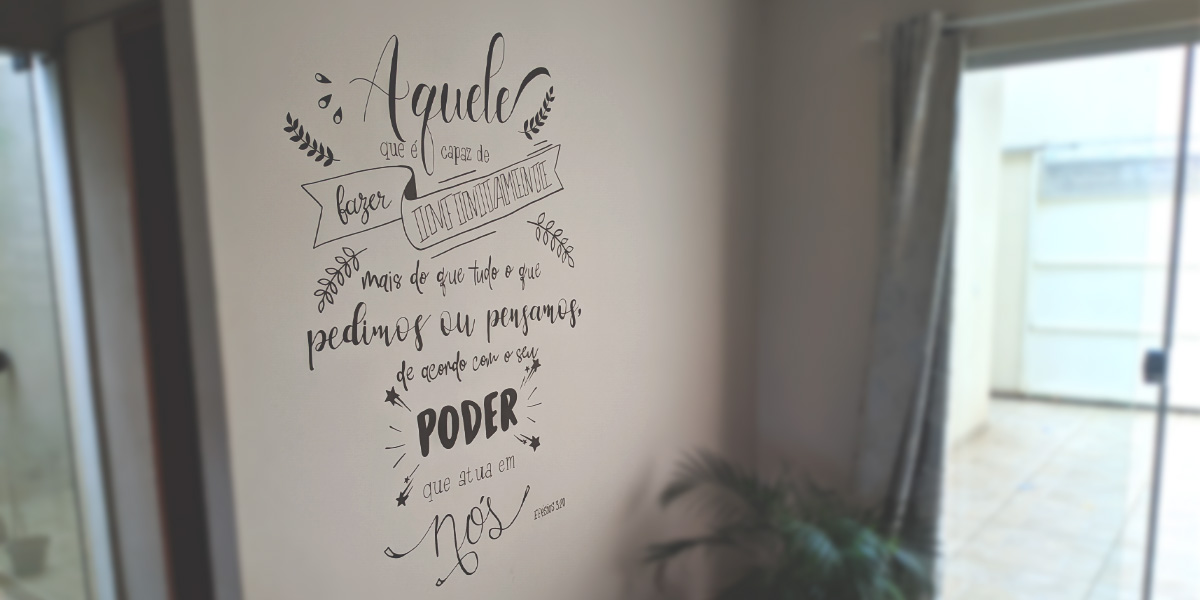 Aquele
que é capaz de
fazer INFINITAMENTE
mais do que tudo o que
pedimos ou pensamos,
de acordo com o seu
PODER
que atua em
nós
Efésios 3.20